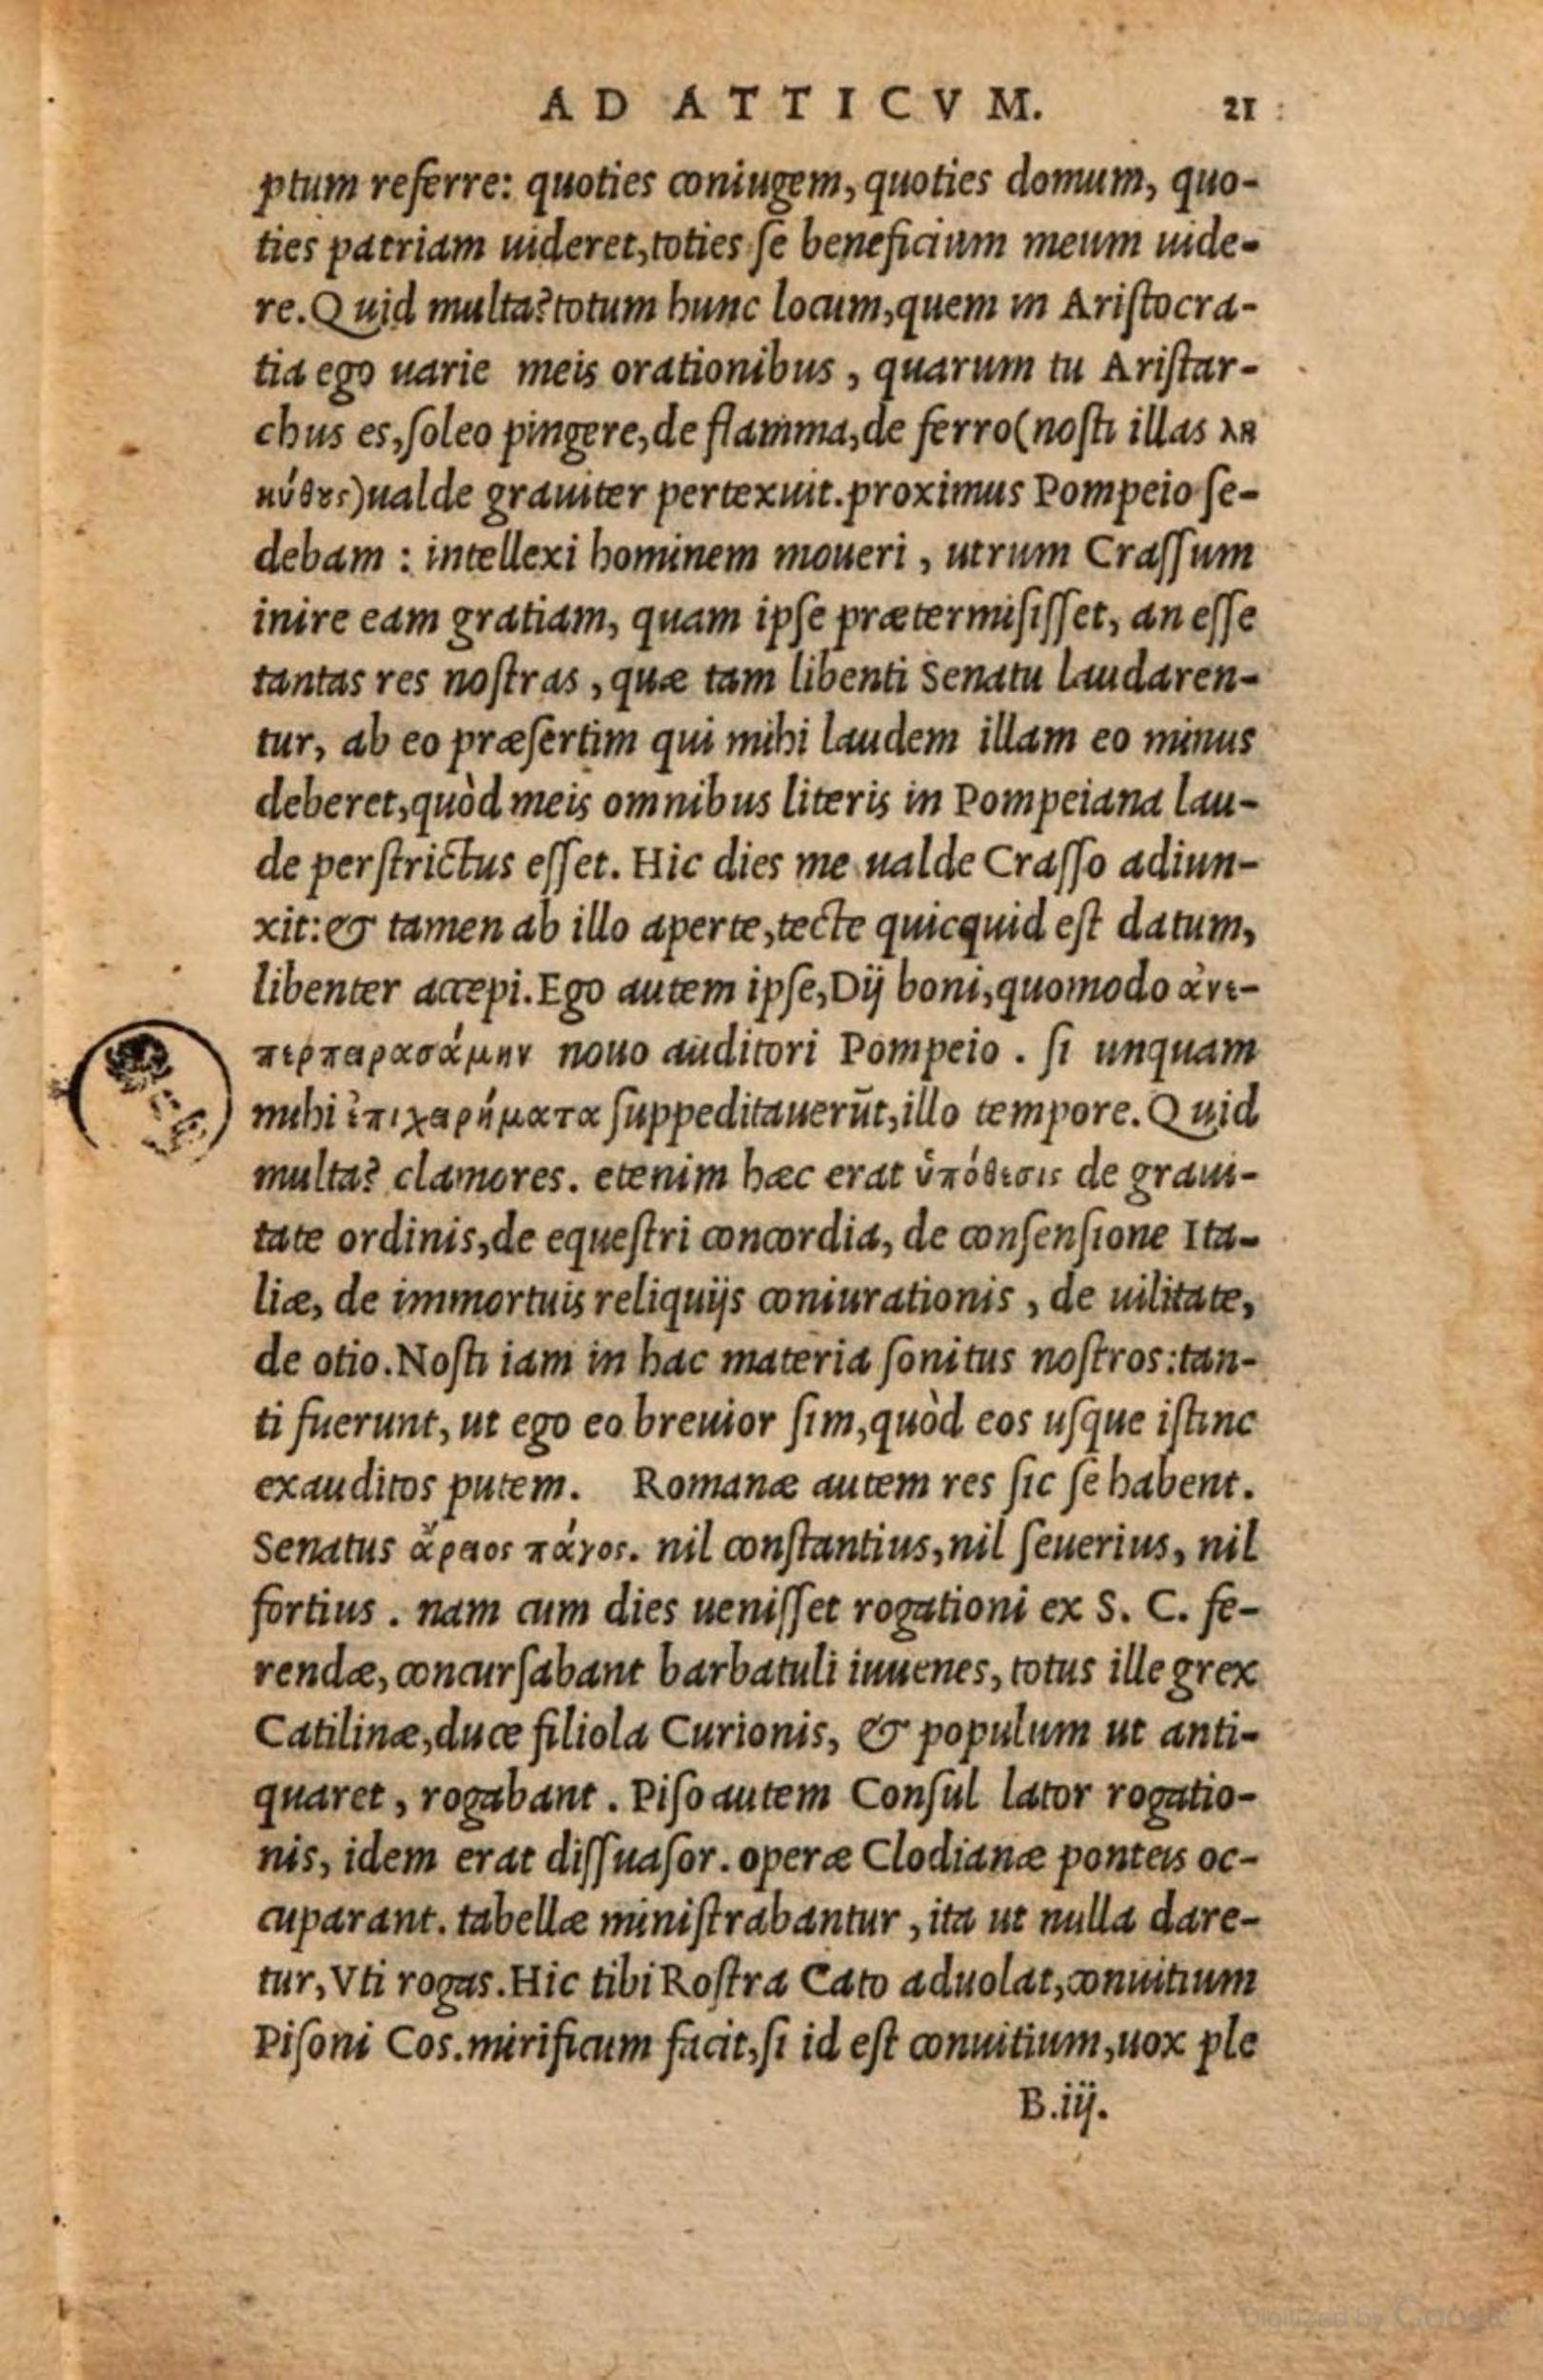 AD ATTICVM. 21
ptum referre: quoties coniugem, quoties domum, quo-
ties patriam uideret, toties se beneficium meum uide-
re. Quid multa? totum hunc locum, quem in Aristocra-
tia ego uarie meis orationibus, quarum tu Aristar-
chus es, soleo pingere, de flamma, de ferro (nosti illas λη
κύθους) ualde grauiter pertexuit. proximus Pompeio se-
debam: intellexi hominem moueri, utrum Crassum
inire eam gratiam, quam ipse prætermisisset, an esse
tantas res nostras, quæ tam libenti Senatu laudaren-
tur, ab eo præsertim qui mihi laudem illam eo minus
deberet, quòd meis omnibus literis in Pompeiana lau-
de perstrictus esset. Hic dies me ualde Crasso adiun-
xit: & tamen ab illo aperte, tecte quicquid est datum,
libenter accepi. Ego autem ipse, Dij boni, quomodo ἀνε-
περπερασάμην nouo auditori Pompeio. si unquam
mihi ἐπιχειρήματα suppeditauerūt, illo tempore. Quid
multa? clamores. etenim hæc erat ὑπόθεσις de graui-
tate ordinis, de equestri concordia, de consensione Ita-
liæ, de immortuis reliquijs coniurationis, de uilitate,
de otio. Nosti iam in hac materia sonitus nostros: tan-
ti fuerunt, ut ego eo breuior sim, quòd eos usque istinc
exauditos putem. Romanæ autem res sic se habent.
Senatus ἄρειος πάγος. nil constantius, nil seuerius, nil
fortius. nam cum dies uenisset rogationi ex S. C. fe-
rendæ, concursabant barbatuli iuuenes, totus ille grex
Catilinæ, duce filiola Curionis, & populum ut anti-
quaret, rogabant. Piso autem Consul lator rogatio-
nis, idem erat dissuasor. operæ Clodianæ ponteis oc-
cuparant. tabellæ ministrabantur, ita ut nulla dare-
tur, Vti rogas. Hic tibi Rostra Cato aduolat, conuitium
Pisoni Cos. mirificum facit, si id est conuitium, uox ple
B.iij.
Digitized by Google